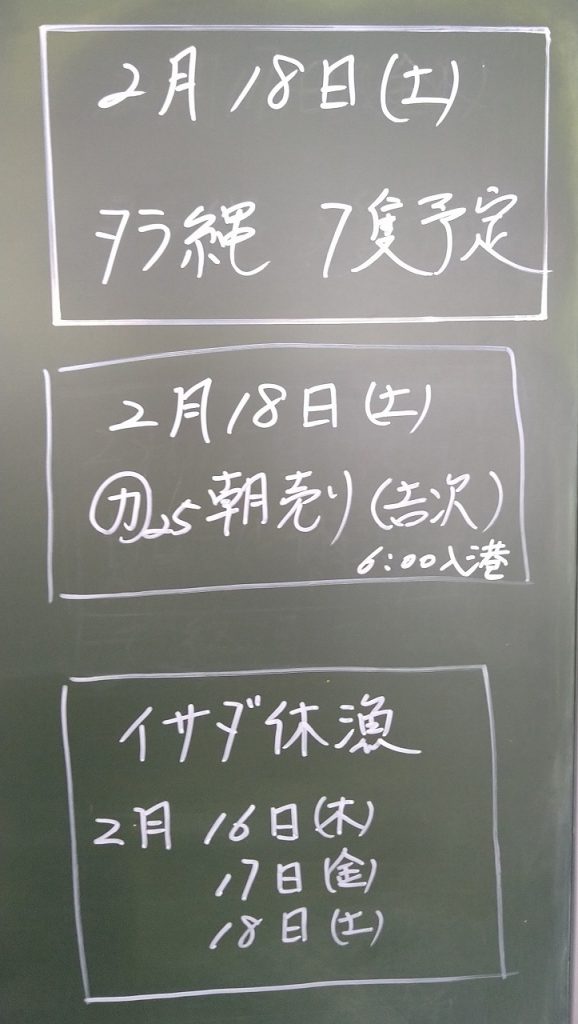 2月18日(土)
タラ縄 7隻予定
2月18日(土)
㋕25朝売り(吉次)
6:00入港
イサダ休漁
2月16日(木)
17日(金)
18日(土)